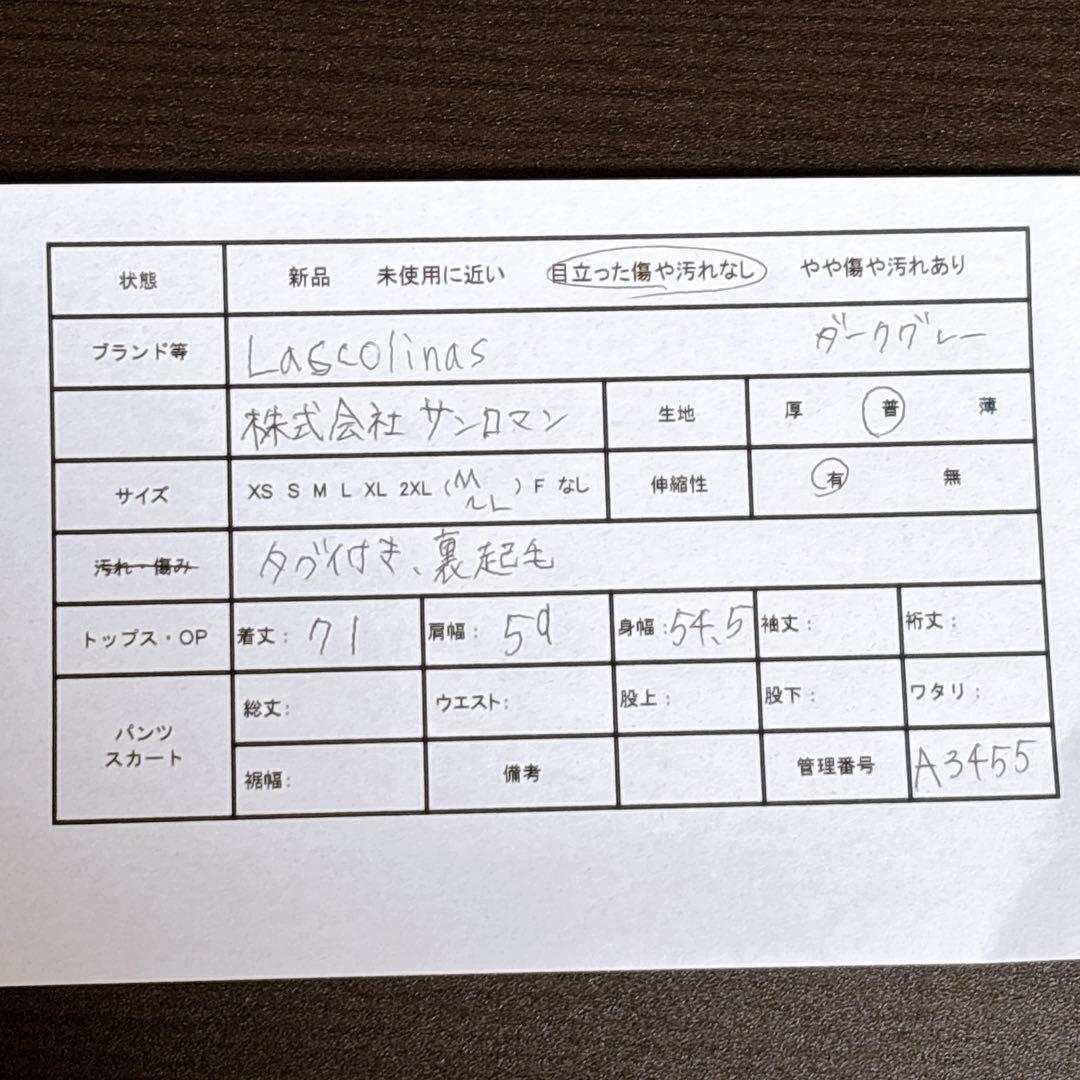 状態 新品 未使用に近い 目立った傷や汚れなし やや傷や汚れあり
ブランド等 Lascolinas ダークグレー
株式会社サンロマン 生地 厚 普 薄
サイズ XS S M L XL 2XL (M~L) F なし 伸縮性 有 無
汚れ・傷み タグ付き、裏起毛
トップス・OP 着丈: 71 肩幅: 59 身幅: 54.5 袖丈: 裄丈:
パンツ スカート 総丈: ウエスト: 股上: 股下: ワタリ:
裾幅: 備考 管理番号 A3455